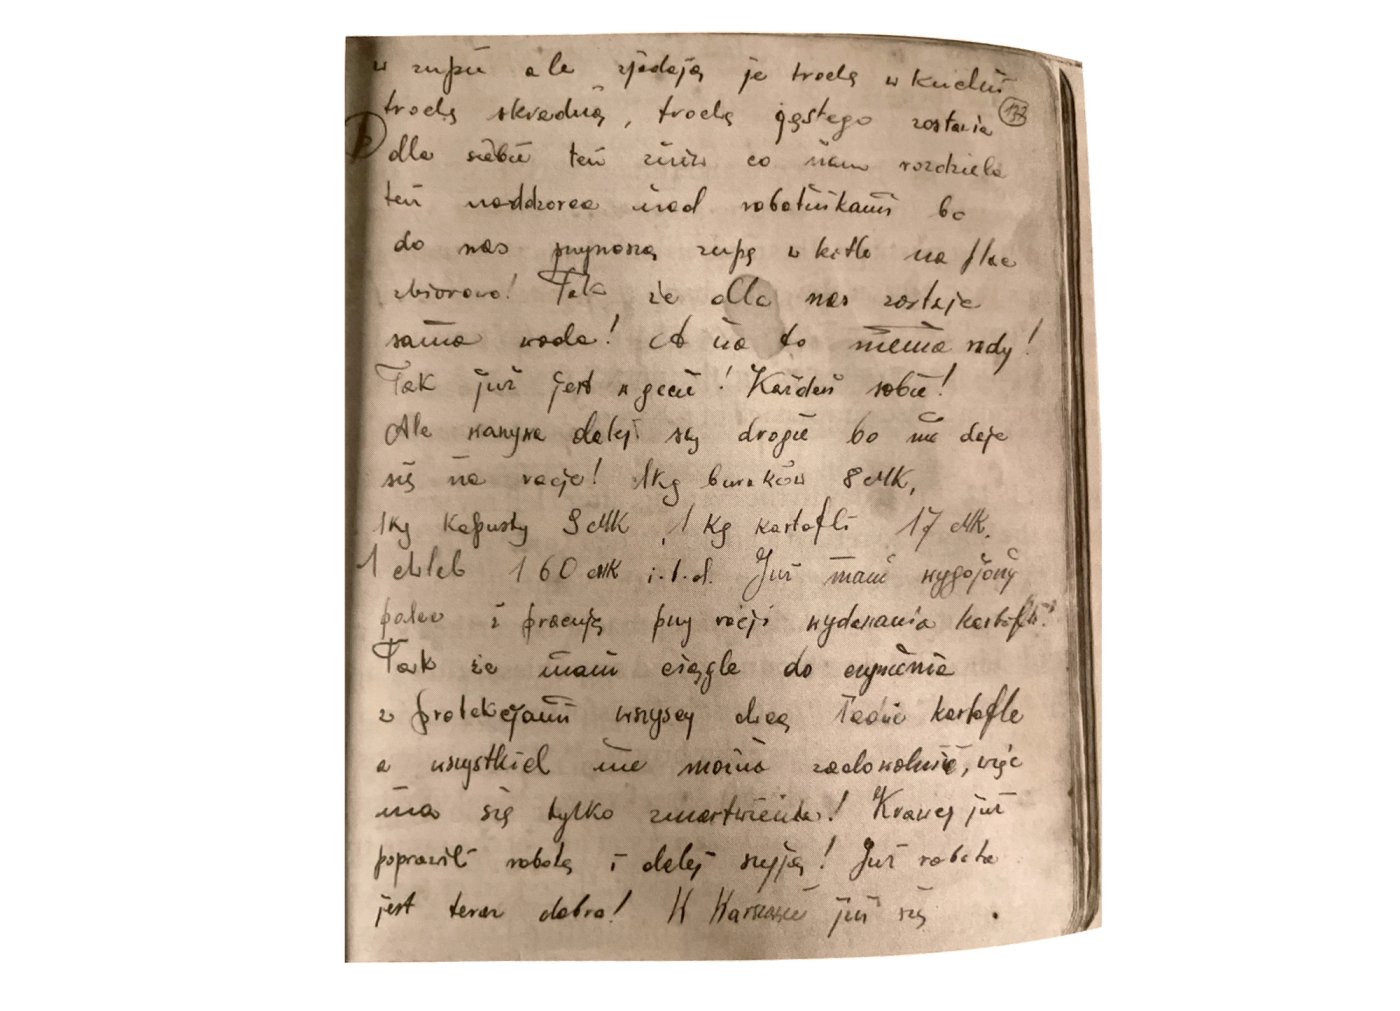 w zupie ale zjadają je trochę w kuchni
trochę skradną, trochę gęstego zostawia
dla siebie ten co nam rozdziela
ten naddzorca nad robotnikami bo
do nas przynoszą zupę w kotle na plac
zbiorowo! Tak że dla nas zostaje
sama woda! A na to niema rady!
Tak już jest w gecie! Każden sobie!
Ale warzywa dalej są drogie bo nie daje
się na racje! 1kg buraków 8 MK,
1kg kapusty 9 MK, 1 kg kartofli 17 MK.
1 chleb 160 MK i.t.d. Już mam wygojony
palec i pracuję przy racji wydawania kartofli!
Tak że mam ciągle do czynienia
z protekcjami wszyscy chcą ładne kartofle
a wszystkich nie można zadowolnić, więc
ma się tylko zmartwienia! Krawcy już
poprawili robotę i dalej szyją! Już robota
jest teraz dobra! W Warszawie już są
132